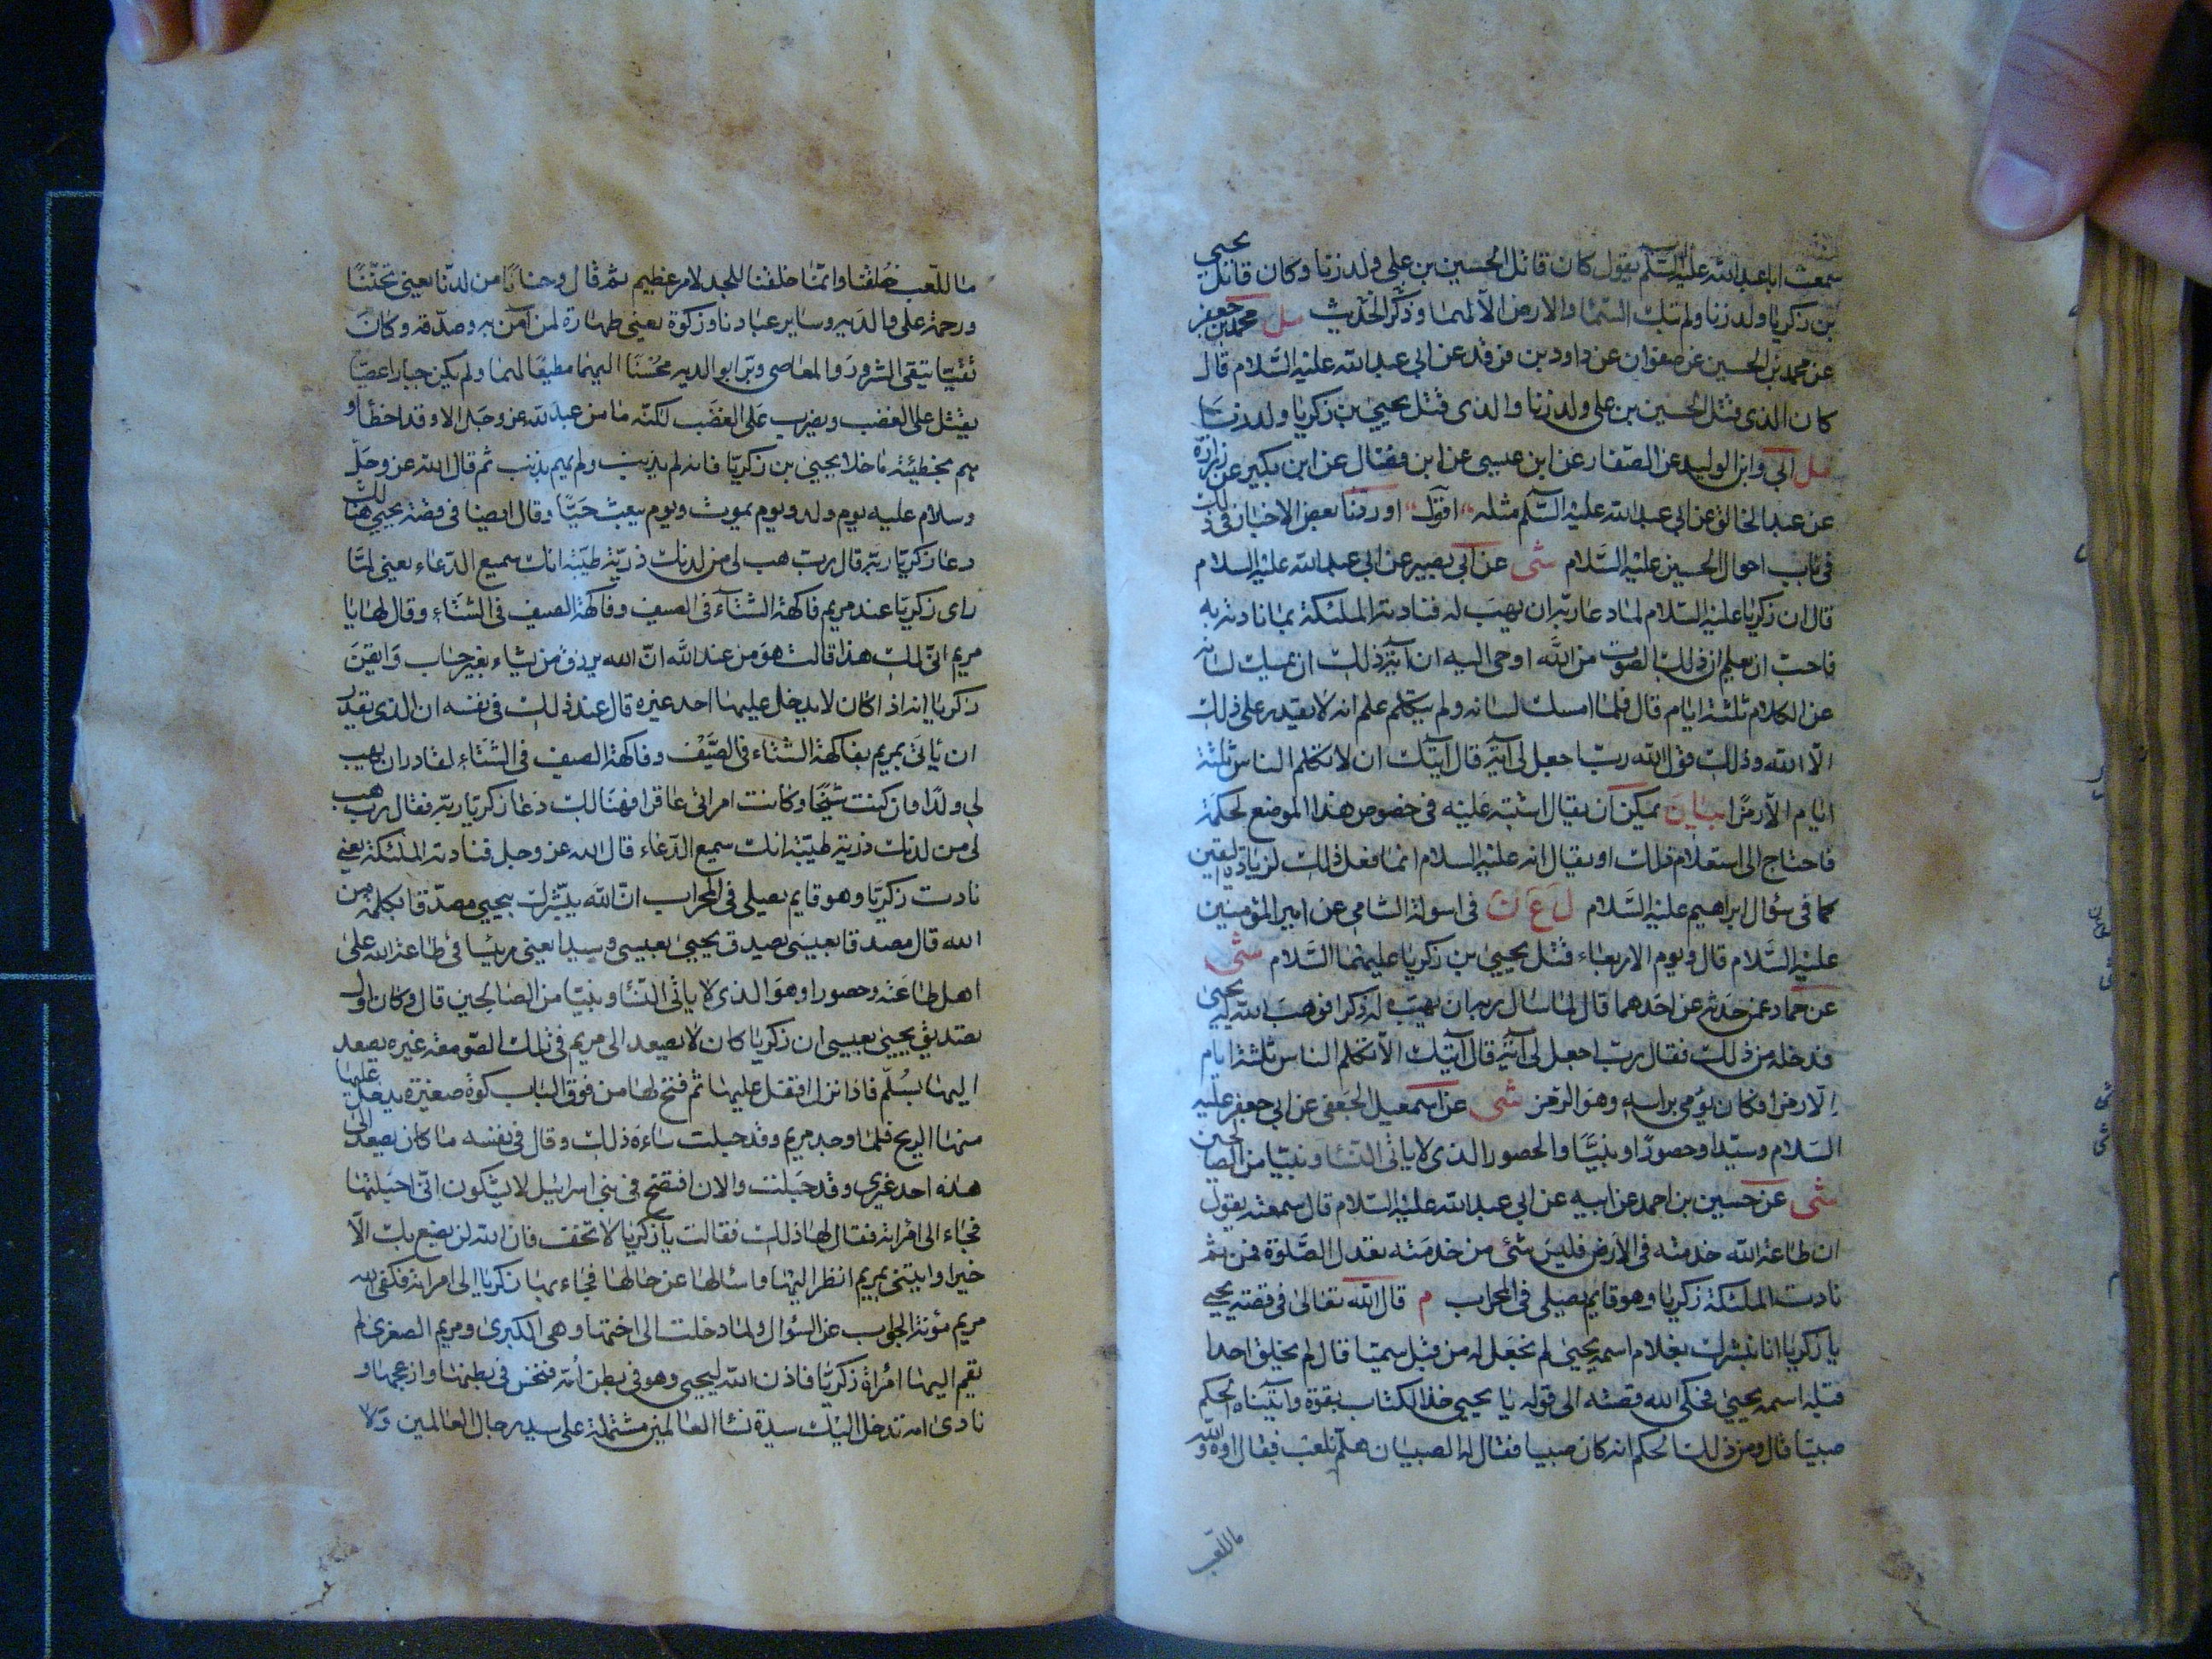 سمعت ابا عبد الله عليه السلام يقول كان قاتل الحسين بن علي ولد زنا وكان قاتل يحيى
بن زكريا ولد زنا ولم تبك السماء والارض الا لهما وذكر الحديث مل محمد بن جعفر
عن محمد بن الحسين عن صفوان عن داود بن فرقد عن ابي عبد الله عليه السلام قال
كان الذى قتل الحسين بن على ولد زنا والذى قتل يحيى بن زكريا ولد زنا
مل ابي وابن الوليد عن الصفار عن ابن عيسى عن ابن فضال عن ابن بكير عن زرارة
عن عبد الخالق عن ابي عبد الله عليه السلم مثله اقول اوردنا بعض الاخبار فى ذلك
فى باب احوال الحسين عليه السلام شى عن ابى بصير عن ابى عبد الله عليه السلام
قال ان زكريا عليه السلام لما دعا ربه ان يهب له فنادته الملئكة بما نادته به
فاحب ان يعلم ان ذلك الصوت من الله اوحى اليه ان آية ذلك ان يمسك لسانه
عن الكلام ثلثة ايام قال فلما امسك لسانه ولم يتكلم علم انه لا يقدر على ذلك
الا الله وذلك قول الله رب اجعل لى آية قال آيتك ان لا تكلم الناس ثلثة
ايام الا رمزا بيان يمكن ان يقال اشتبه عليه فى خصوص هذا الموضع لحكمة
فاحتاج الى استعلام ذلك او يقال انه عليه السلام انما فعل ذلك لزيادة اليقين
كما فى سؤال ابراهيم عليه السلام ل ع ن فى اسولة الشامى عن امير المؤمنين
عليه السلام قال ويوم الاربعاء قتل يحيى بن زكريا عليهما السلام شى
عن حماد عمن حدثه عن احدهما قال لما سال ربه ان يهب له ذكرا فوهب الله له يحيى
فدخله من ذلك فقال رب اجعل لى آية قال آيتك الا تكلم الناس ثلثة ايام
الا رمزا فكان يومى براسه وهو الرمز شى عن اسمعيل الجعفى عن ابى جعفر عليه
السلام وسيدا وحصورا ونبيا والحصور الذى لا ياتى النسا ونبيا من الصالحين
شى عن حسين بن احمد عن ابيه عن ابى عبد الله عليه السلام قال سمعته يقول
ان طاعة الله خدمته فى الارض فليس شئ من خدمته يعدل الصلوة فمن ثم
نادت الملئكة زكريا وهو قايم يصلى فى المحراب م قال الله تعالى فى قصة يحيى
يا زكريا انا نبشرك بغلام اسمه يحيى لم نجعل له من قبل سميا قال لم يخلق احدا
قبله اسمه يحيى فحكى الله قصته الى قوله يا يحيى خذ الكتاب بقوة وآتيناه الحكم
صبيا قال ومن ذلك الحكم انه كان صبيا فقال له الصبيان هلم نلعب فقال اوه والله
ما للعب
ما للعب خلقنا وانما خلقنا للجد لامر عظيم ثم قال وحنانا من لدنا يعنى تحننا
ورحمة على والديه وساير عبادنا وزكوة يعنى طهارة لمن آمن به وصدقه وكان
تقيا يتقى الشرور والمعاصى وبرا بوالديه محسنا اليهما مطيعا لهما ولم يكن جبارا عصيا
يقتل على الغضب ويضرب على الغضب لكنه ما من عبد لله عز وجل الا وقد اخطا او
هم بخطيئة ما خلا يحيى بن زكريا فانه لم يذنب ولم يهم بذنب ثم قال الله عز وجل
وسلام عليه يوم ولد ويوم يموت ويوم يبعث حيا وقال ايضا فى قصة يحيى هنالك
دعا زكريا ربه قال رب هب لى من لدنك ذرية طيبة انك سميع الدعاء يعنى لما
راى زكريا عند مريم فاكهة الشتاء فى الصيف وفاكهة الصيف فى الشتاء وقال لها يا
مريم انى لك هذا قالت هو من عند الله ان الله يرزق من يشاء بغير حساب وايقن
زكريا انه اذا كان لا يدخل عليها احد غيره قال عند ذلك فى نفسه ان الذى يقدر
ان ياتى مريم بفاكهة الشتاء فى الصيف وفاكهة الصيف فى الشتاء لقادر ان يهب
لى ولدا وان كنت شيخا وكانت امراتى عاقرا فهنالك دعا زكريا ربه فقال رب هب
لى من لدنك ذرية طيبة انك سميع الدعاء قال الله عز وجل فنادته الملئكة يعنى
نادت زكريا وهو قايم يصلى فى المحراب ان الله يبشرك بيحيى مصدقا بكلمة من
الله قال مصدقا بعيسى يصدق يحيى بعيسى وسيدا يعنى رئيسا فى طاعة الله على
اهل طاعته وحصورا وهو الذى لا ياتى النسا ونبيا من الصالحين قال وكان اول
تصديق يحيى بعيسى ان زكريا كان لا يصعد الى مريم فى تلك الصومعة غيره يصعد
اليها بسلم فاذا نزل اقفل عليها ثم فتح لها من فوق الباب كوة صغيرة يدخل عليها
منها الريح فلما وجد مريم وقد حبلت ساءه ذلك وقال فى نفسه ما كان يصعد الى
هذه احد غيرى وقد حبلت والان افتضح فى بنى اسرائيل لا يشكون انى احبلتها
فجاء الى امراته فقال لها ذلك فقالت يا زكريا لا تخف فان الله لن يصنع بك الا
خيرا وايتنى بمريم انظر اليها واسالها عن حالها فجاء بها زكريا الى امراته فكفى الله
مريم مؤنة الجواب عن السؤال ولما دخلت الى اختها وهى الكبرى ومريم الصغرى لم
تقم اليها امراة زكريا فاذن الله ليحيى وهو فى بطن امه فنخس فى بطنها وازعجها و
نادى امه تدخل اليك سيدة نساء العالمين مشتملة على سيد رجال العالمين ولا